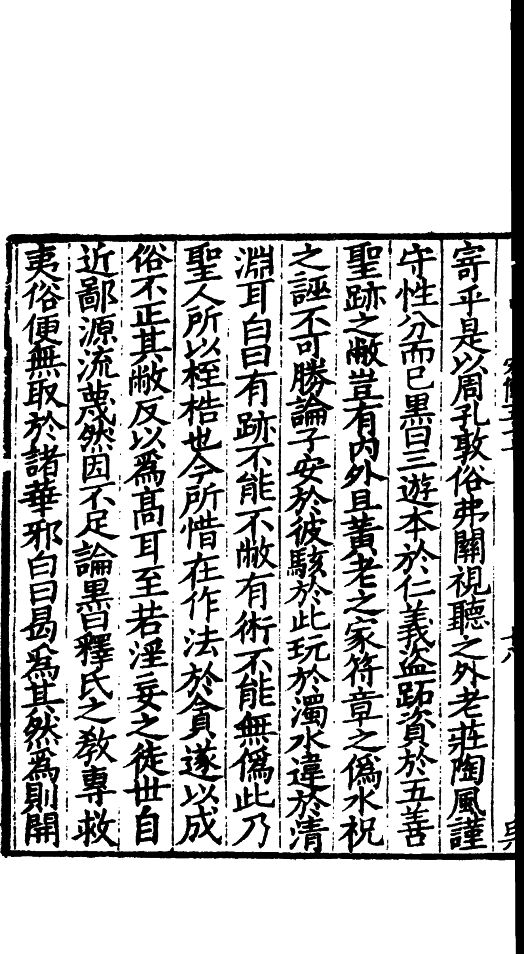 寄乎是以周孔敦俗弗關視聽之外老莊陶風謹
守性分而已黑曰三遊本於仁義盗跖資於五善
聖跡之敝豈有內外且黃老之家符章之偽水祝
之誣不可勝論子安於彼駭於此玩於濁水違於清
淵耳白曰有跡不能不敝有術不能無偽此乃
聖人所以桎梏也今所惜在作法於貪遂以成
俗不正其敝反以為高耳至若淫妄之徒世自
近鄙源流蔑然因不足論黑曰釋氏之教專救
夷俗便無取於諸華邪白曰曷為其然為則開